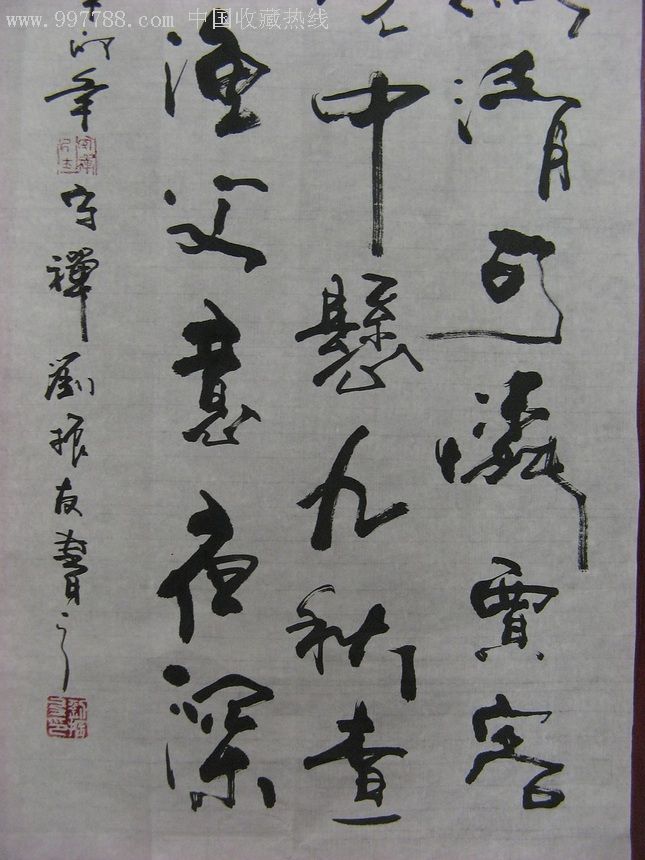 www.997788.com 中国收藏热线
可憐賈客
中懸九秋查
漁父意夜深
年
守禪劉振友書之